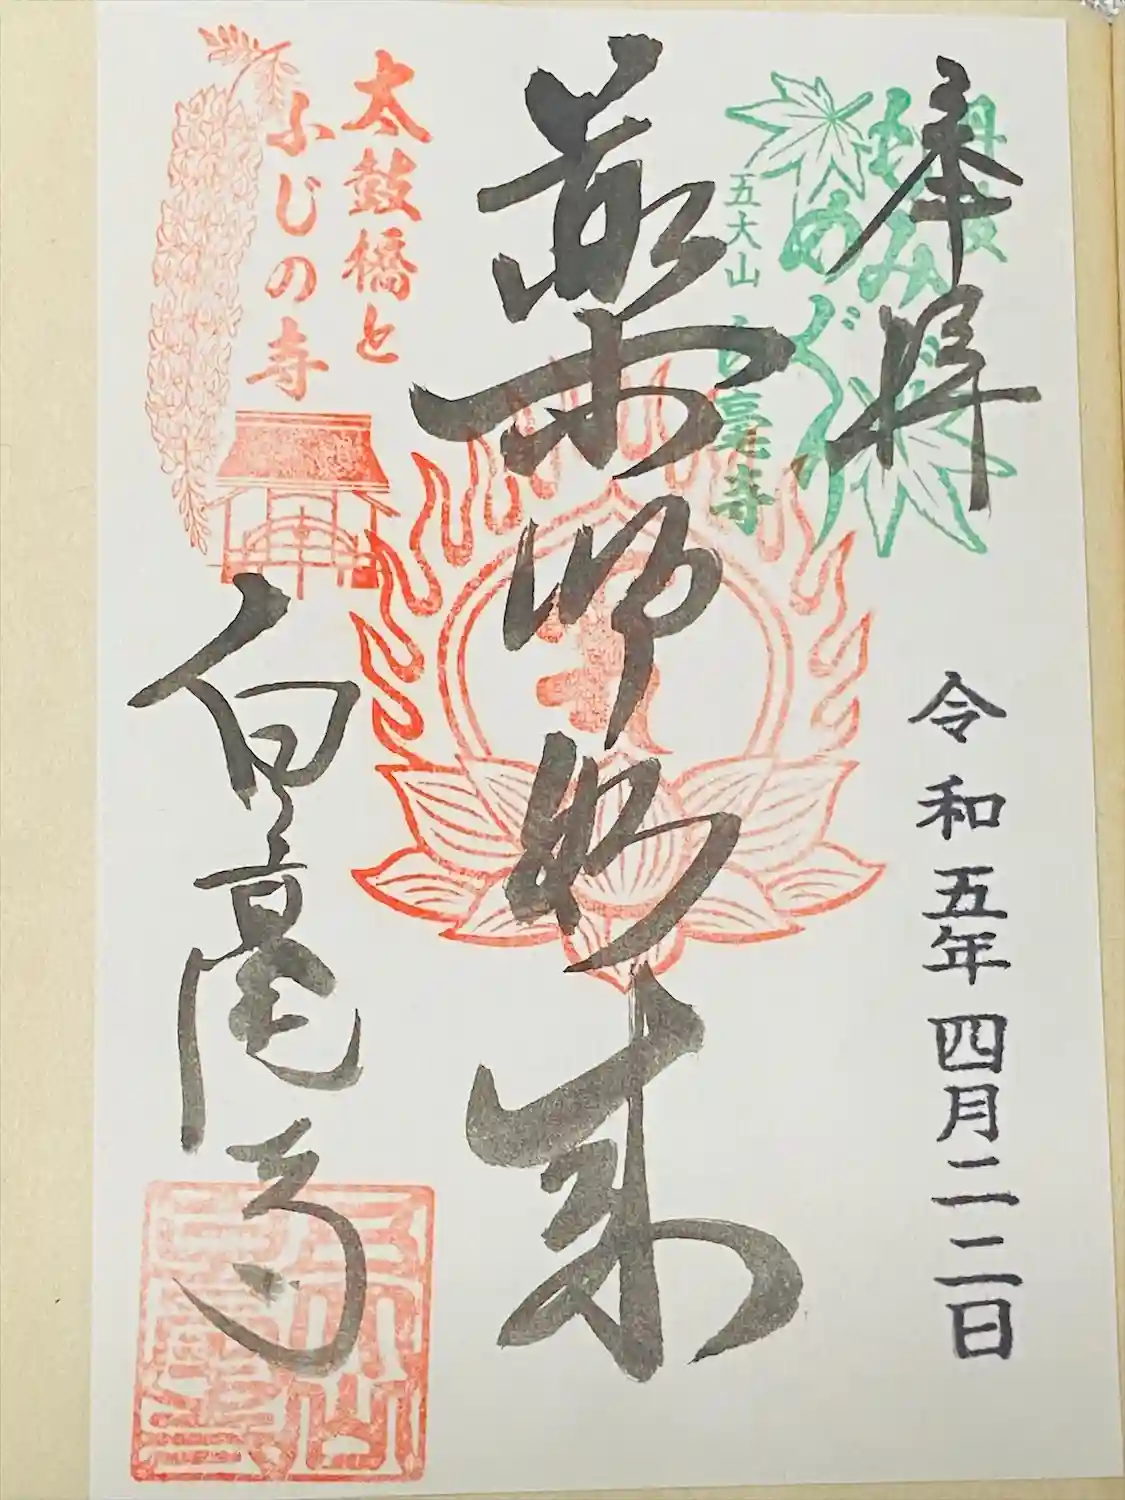 奉拝
丹波
もみじ
めぐり
五大山 白毫寺
令和五年四月二二日
薬師如来
太鼓橋と
ふじの寺
白毫寺